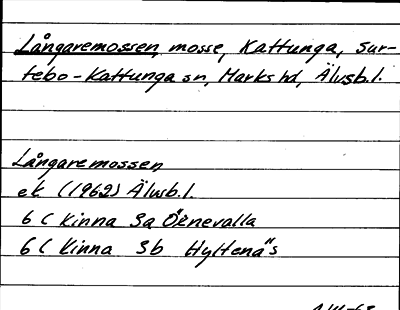 Långaremossen, mosse, Kattunga, Sur-
tebo-Kattunga sn, Marks hd, Älvsb.l.
Långaremossen,
ek (1962) Älvsb.l.
6 C Kinna 3a Öxnevalla
6 C Kinna 3b Hyltenäs